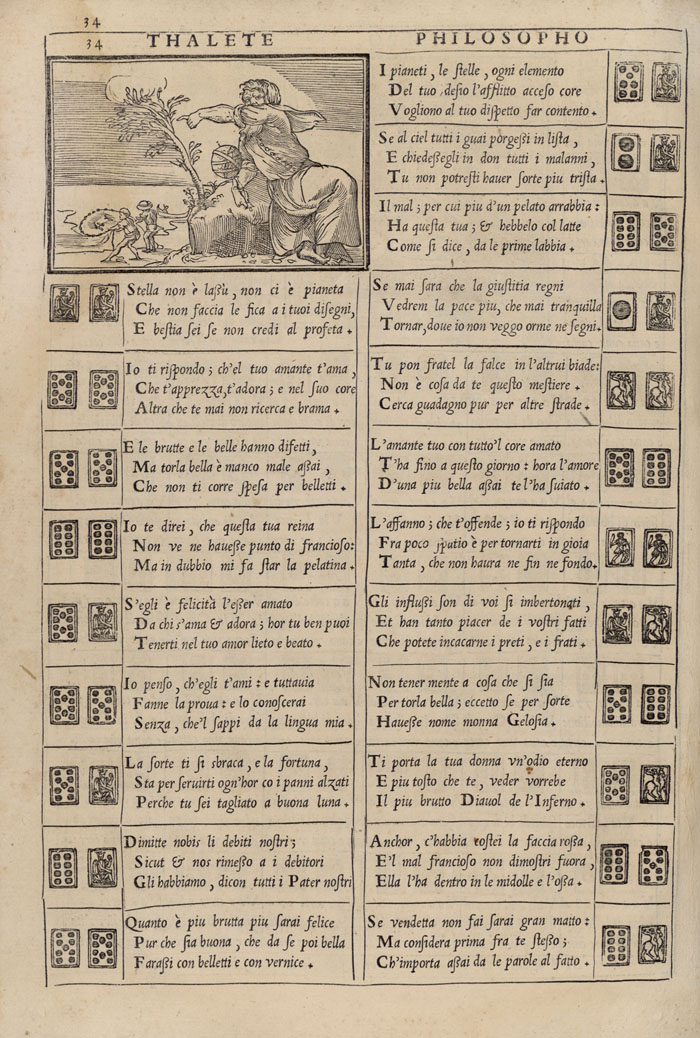 34
34 THALETE PHILOSOPHO
Stella non è laßù, non ci è pianeta
Che non faccia le fica a i tuoi disegni,
E bestia sei se non credi al profeta.
Io ti rispondo; ch'el tuo amante t'ama,
Che t'apprezza, t'adora; e nel suo core
Altra che te mai non ricerca e brama.
E le brutte e le belle hanno difetti,
Ma torla bella è manco male aßai,
Che non ti corre spesa per belletti.
Io te direi, che questa tua reina
Non ve ne haueße punto di francioso:
Ma in dubbio mi fa star la pelatina.
S'egli è felicità l'eßer amato
Da chi s'ama & adora; hor tu ben puoi
Tenerti nel tuo amor lieto e beato.
Io penso, ch'egli t'ami: e tuttauia
Fanne la proua: e lo conoscerai
Senza, che'l sappi da la lingua mia.
La sorte ti si sbraca, e la fortuna,
Sta per seruirti ogn'hor co i panni alzati
Perche tu sei tagliato a buona luna.
Dimitte nobis li debiti nostri;
Sicut & nos rimeßo a i debitori
Gli habbiamo, dicon tutti i Pater nostri
Quanto è piu brutta piu sarai felice
Pur che sia buona, che da se poi bella
Faraßi con belletti e con vernice.
I pianeti, le stelle, ogni elemento
Del tuo desio l'afflitto acceso core
Vogliono al tuo dispetto far contento.
Se al ciel tutti i guai porgeßi in lista,
E chiedeßegli in don tutti i malanni,
Tu non potresti hauer sorte piu trista.
Il mal; per cui piu d'un pelato arrabbia:
Ha questa tua; & hebbelo col latte
Come si dice, da le prime labbia.
Se mai sara che la giustitia regni
Vedrem la pace piu, che mai tranquilla
Tornar, doue io non veggo orme ne segni.
Tu pon fratel la falce in l'altrui biade:
Non è cosa da te questo mestiere.
Cerca guadagno pur per altre strade.
L'amante tuo con tutto'l core amato
T'ha fino a questo giorno: hora l'amore
D'una piu bella aßai te l'ha suiato.
L'affanno; che t'offende; io ti rispondo
Fra poco spatio è per tornarti in gioia
Tanta, che non haura ne fin ne fondo.
Gli influßi son di voi si imbertonati,
Et han tanto piacer de i vostri fatti
Che potete incacarne i preti, e i frati.
Non tener mente a cosa che si sia
Per torla bella; eccetto se per sorte
Haueße nome monna Gelosia.
Ti porta la tua donna vn'odio eterno
E piu tosto che te, veder vorrebe
Il piu brutto Diauol de l'Inferno.
Anchor, c'habbia costei la faccia roßa,
E'l mal francioso non dimostri fuora,
Ella l'ha dentro in le midolle e l'oßa.
Se vendetta non fai sarai gran matto:
Ma considera prima fra te steßo;
Ch'importa aßai da le parole al fatto.